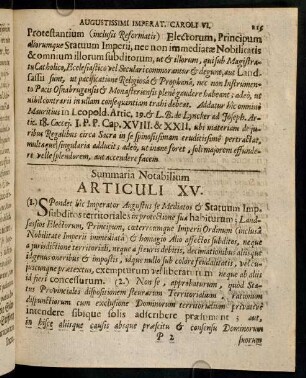 AUGUSTISSIMI IMPERAT. CAROLI VI. 115
Protestantium (inclusis Reformatis) Electorum, Principum
aliorumque Statuum Imperii, nec non immediatæ Nobilitatis
& omnium illorum subditorum, ut & illorum, qui sub Magistra-
tu Catholico, Ecclesiastico vel Seculari commorantur & degunt, aut Land-
sassii sunt, ut pacificatione Religiosâ & Prophanâ, nec non Instrumen-
to Pacis Osnabrugensis & Monasteriensis plenè gaudere habeant: adeò, ut
nihil contrarii in ullam consequentiam trahi debeat. Addatur hîc omnino
Mauritius in Leopold. Artic. 19. & L. B. de Lyncker ad Joseph. Ar-
tic. 18. Cæter. I. P. P. Cap. XVIII. & XXII. ubi materiam de ju-
ribus Regalibus circa Sacra in se spinosissimam eruditissimè pertractat,
multaque singularia adducit; adeò, ut inane foret, soli majorem effunde-
re velle splendorem, aut accendere facem.
Summaria Notabilium
ARTICULI XV.
(1.) Spondet hîc Imperator Augustus se Mediatos & Statuum Imp.
subditos territoriales in protectione sua habiturum; Land-
sassios Electorum, Principum, cæterorumque Imperii Ordinum (inclusâ
Nobilitate Imperii immediatâ) & homagio aliis affectos subditos, neque
à jurisdictione territoriali, neque à steuris debitis, decimationibus aliisque
oneribus & impostis, idque nullo sub colore feudalitatis,
prætextu, exempturum vel liberaturum neque ab aliis
id fieri concessurum. (2.) Non se, approbaturum, quòd Sta-
tus Provinciales dispositionem steurarum Territorialium, rationum
dispunctionem cum exclusione Dominorum territorialium privativè
intendere sibique solis adscribere præsumant; aut,
in hisce aliisque causis absque præscitu & consensu Dominorum
P 2 suorum